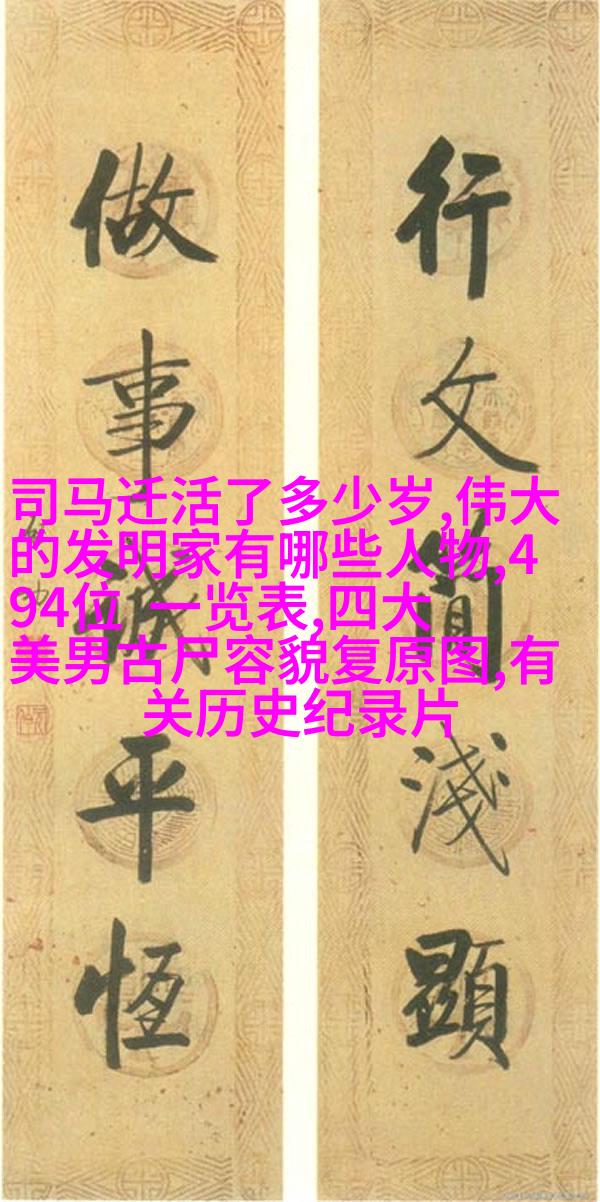 行文簡淺顯
做事誠平恆
司马迁活了多少岁,伟大
的发明家有哪些人物,4
94位 一览表,四大
美男古尸容貌复原图,有
关历史纪录片